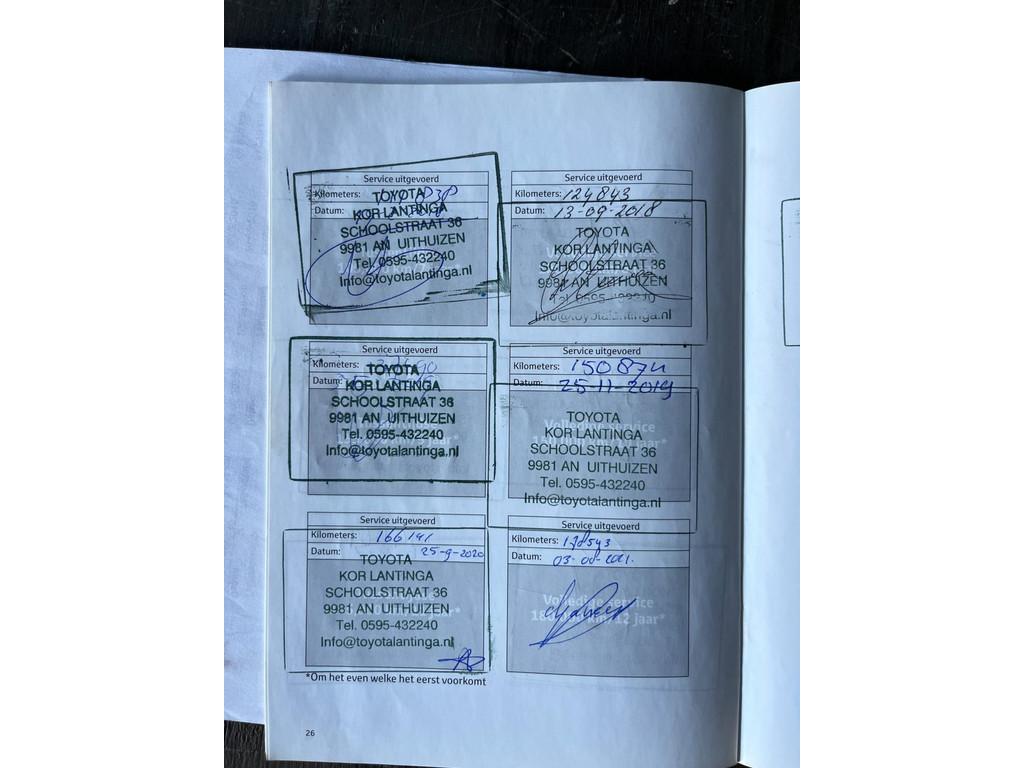 Service uitgevoerd
Kilometers:
Datum:
TOYOTA
KOR LANTINGA
SCHOOLSTRAAT 36
9981 AN UITHUIZEN
Tel. 0595-432240
Info@toyotalantinga.nl
Service uitgevoerd
Kilometers: 124843
Datum: 13-09-2018
TOYOTA
KOR LANTINGA
SCHOOLSTRAAT 36
9981 AN UITHUIZEN
Tel. 0595-432240
Info@toyotalantinga.nl
Service uitgevoerd
Kilometers:
Datum:
TOYOTA
KOR LANTINGA
SCHOOLSTRAAT 36
9981 AN UITHUIZEN
Tel. 0595-432240
Info@toyotalantinga.nl
Service uitgevoerd
Kilometers: 150874
Datum: 25-11-2019
Volledige service
180.000 km/12 jaar*
TOYOTA
KOR LANTINGA
SCHOOLSTRAAT 36
9981 AN UITHUIZEN
Tel. 0595-432240
Info@toyotalantinga.nl
Service uitgevoerd
Kilometers: 166141
Datum: 25-9-2020
TOYOTA
KOR LANTINGA
SCHOOLSTRAAT 36
9981 AN UITHUIZEN
Tel. 0595-432240
Info@toyotalantinga.nl
Service uitgevoerd
Kilometers: 178543
Datum:
Volledige service
180.000 km/12 jaar*
*Om het even welke het eerst voorkomt
26